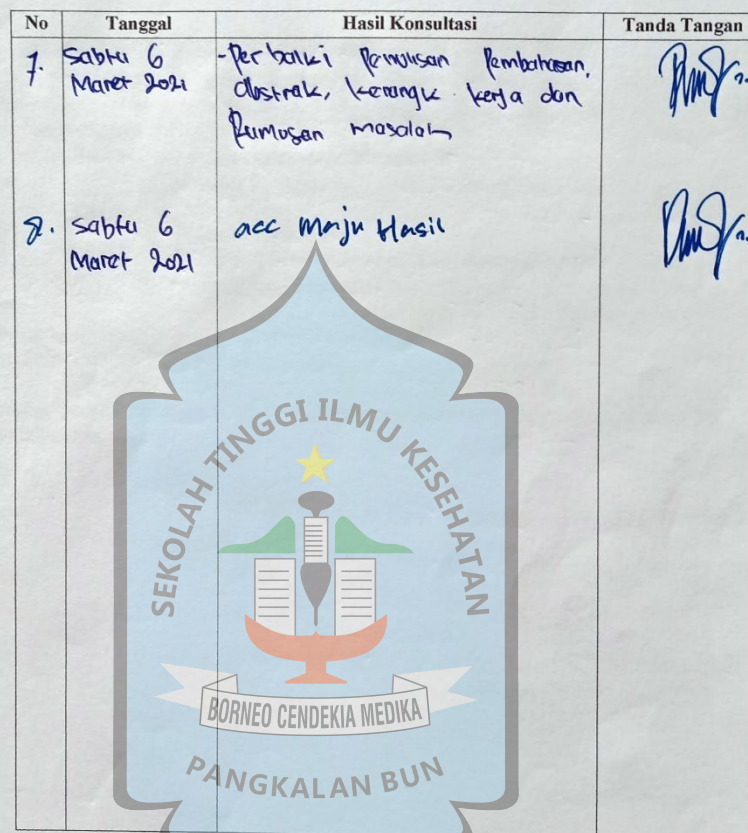 No Tanggal Hasil Konsultasi Tanda Tangan
7. Sabtu 6 -Perbaiki Penulisan Pembahasan,
Maret 2021 abstrak, kerangk kerja dan
Rumusan masalah
8. Sabtu 6 acc maju Hasil
Maret 2021
SEKOLAH TINGGI ILMU KESEHATAN
BORNEO CENDEKIA MEDIKA
PANGKALAN BUN